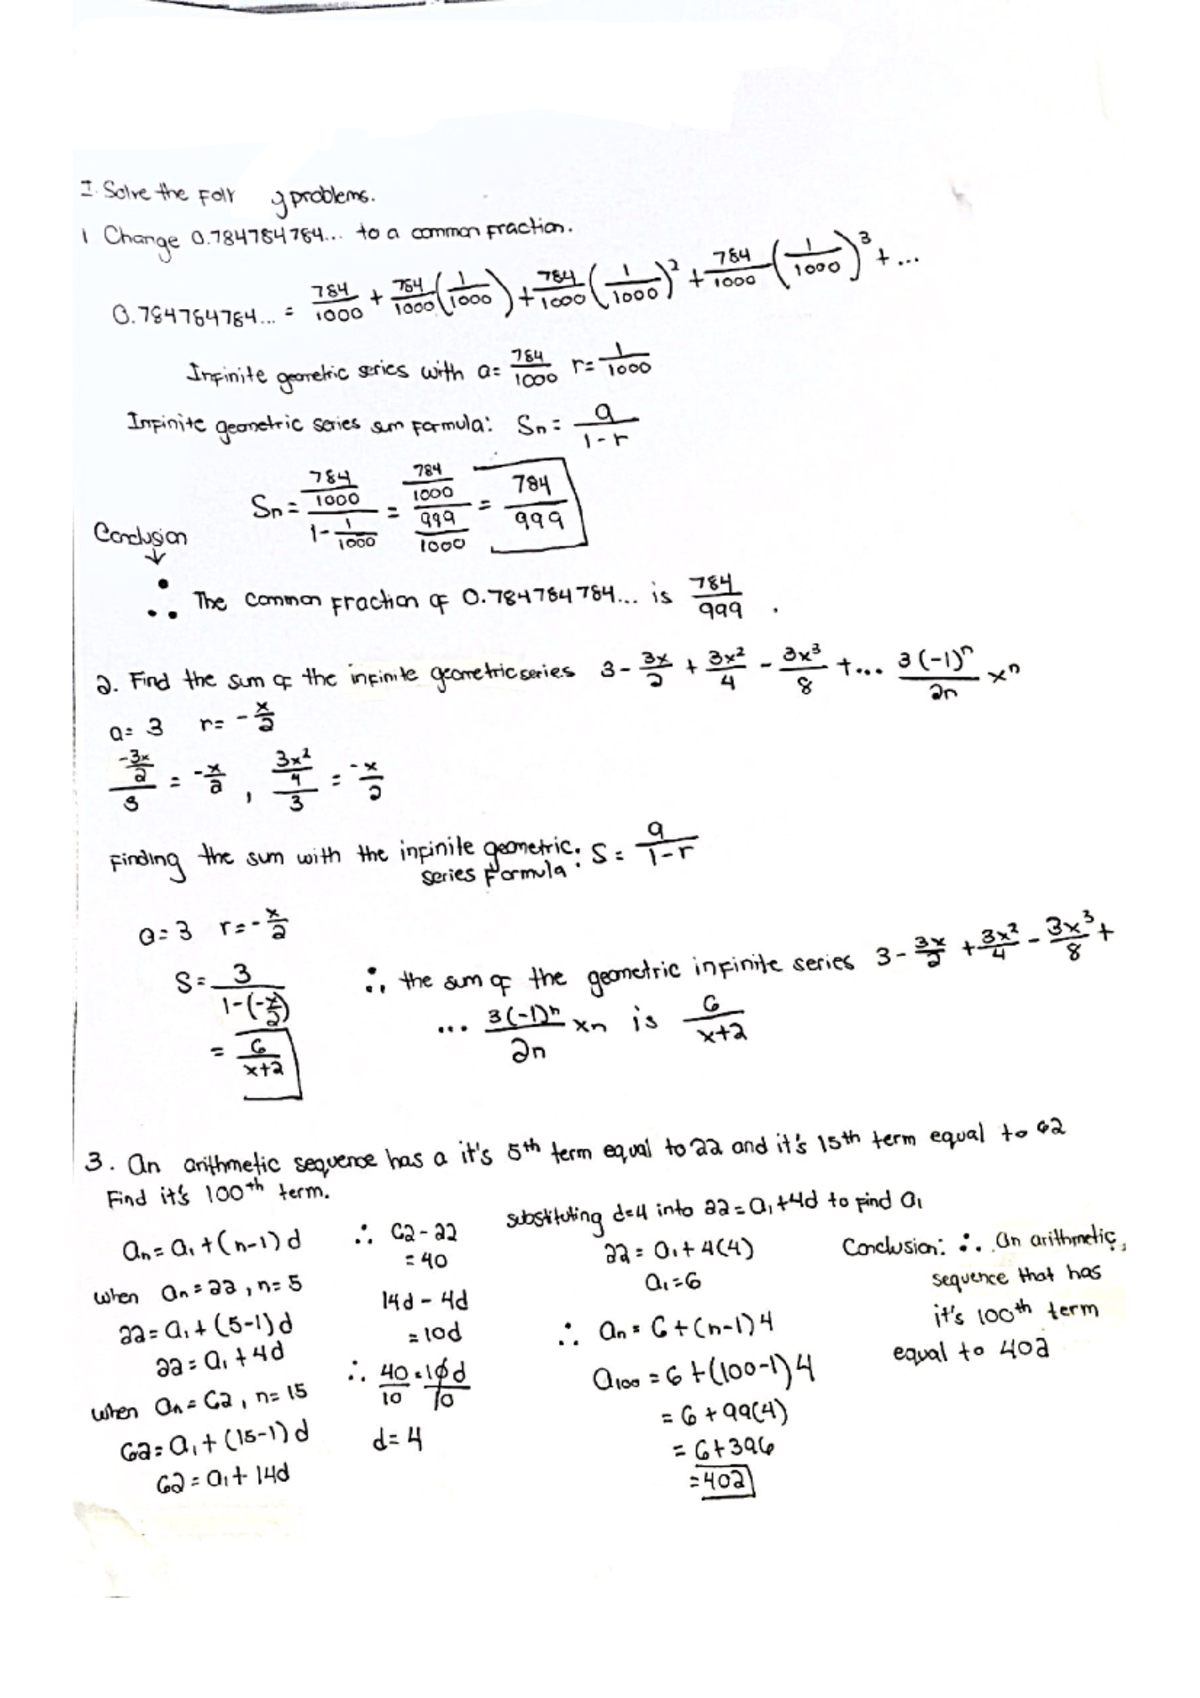 I. Solve the Foll g problems.
1 Change 0.784784784... to a common fraction.
0.784784784... = 784/1000 + 784/1000 (1/1000) + 784/1000 (1/1000)² + 784/1000 (1/1000)³ + ...
Infinite geometric series with a= 784/1000 r= 1/1000
Infinite geometric series sum formula: Sn = a/1-r
Sn = 784/1000 / 1 - 1/1000 = 784/1000 / 999/1000 = 784/999
Conclusion
↓
∴ The common fraction of 0.784784784... is 784/999 .
2. Find the sum of the infinite geometric series 3 - 3x/2 + 3x²/4 - 3x³/8 + ... 3(-1)ⁿ/2n xⁿ
a= 3 r= - x/2
-3x/2 / 3 = -x/2 , 3x²/4 / 3 = -x/2
Finding the sum with the infinite geometric series formula: S = a/1-r
a=3 r= - x/2
S = 3 / 1-(-x/2)
= 6/x+2
∴ the sum of the geometric infinite series 3 - 3x/2 + 3x²/4 - 3x³/8 +
... 3(-1)ⁿ/2n xn is 6/x+2
3. An arithmetic sequence has a it's 5th term equal to 22 and it's 15th term equal to 62
Find it's 100th term.
an = a₁ + (n-1)d
when an = 22, n= 5
22 = a₁ + (5-1)d
22 = a₁ + 4d
when an = 62, n= 15
62 = a₁ + (15-1)d
62 = a₁ + 14d
∴ 62 - 22
= 40
14d - 4d
= 10d
∴ 40/10 = 10d/10
d= 4
substituting d=4 into 22 = a₁+4d to find a₁
22 = a₁ + 4(4)
a₁ = 6
∴ an = 6 + (n-1)4
a100 = 6 + (100-1)4
= 6 + 99(4)
= 6 + 396
= 402
Conclusion: ∴ An arithmetic,
sequence that has
it's 100th term
equal to 402